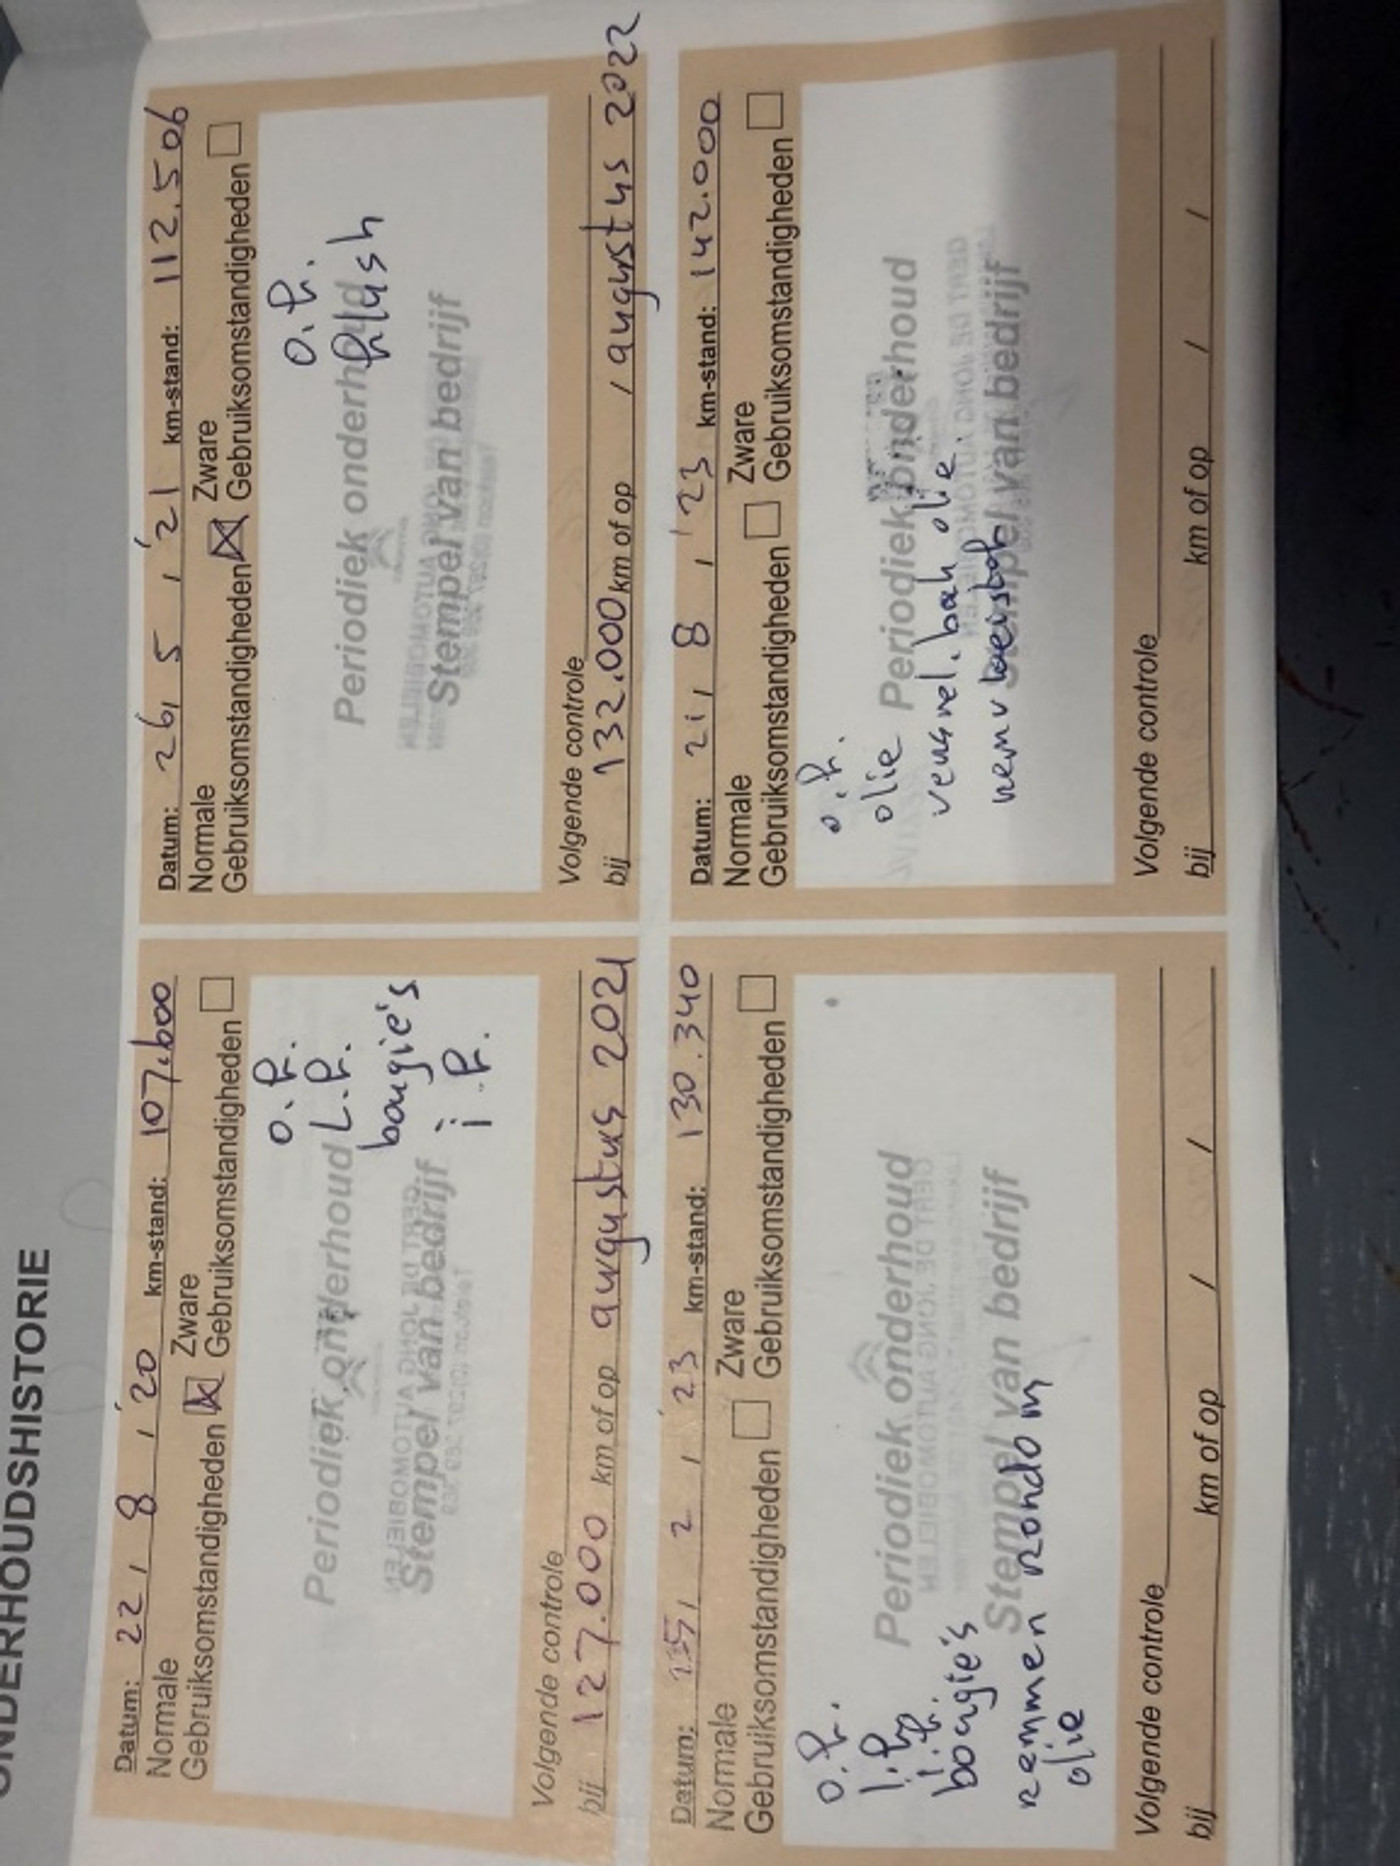 ONDERHOUDSHISTORIE
Datum: 22 / 8 / '20 km-stand: 107.600
Normale Zware
Gebruiksomstandigheden ☒ Gebruiksomstandigheden ☐
O.F.
Periodiek onderhoud L.F.
bougie's
Stempel van bedrijf i.F.
Volgende controle
bij 127.000 km of op augustus 2021
Datum: 26 / 5 / '21 km-stand: 112.506
Normale Zware
Gebruiksomstandigheden ☒ Gebruiksomstandigheden ☐
O.F.
Periodiek onderhoud flush
Stempel van bedrijf
Volgende controle
bij 132.000 km of op / augustus 2022
Datum: 25 / 2 / '23 km-stand: 130.340
Normale Zware
Gebruiksomstandigheden ☐ Gebruiksomstandigheden ☐
O.F.
l.F.
i.F. Periodiek onderhoud
bougie's
Stempel van bedrijf
remmen rondom
olie
Volgende controle
bij km of op / /
Datum: 21 / 8 / '23 km-stand: 142.000
Normale Zware
Gebruiksomstandigheden ☐ Gebruiksomstandigheden ☐
o.F.
olie Periodiek onderhoud
versnel.bak olie
Stempel van bedrijf
Volgende controle
bij km of op / /